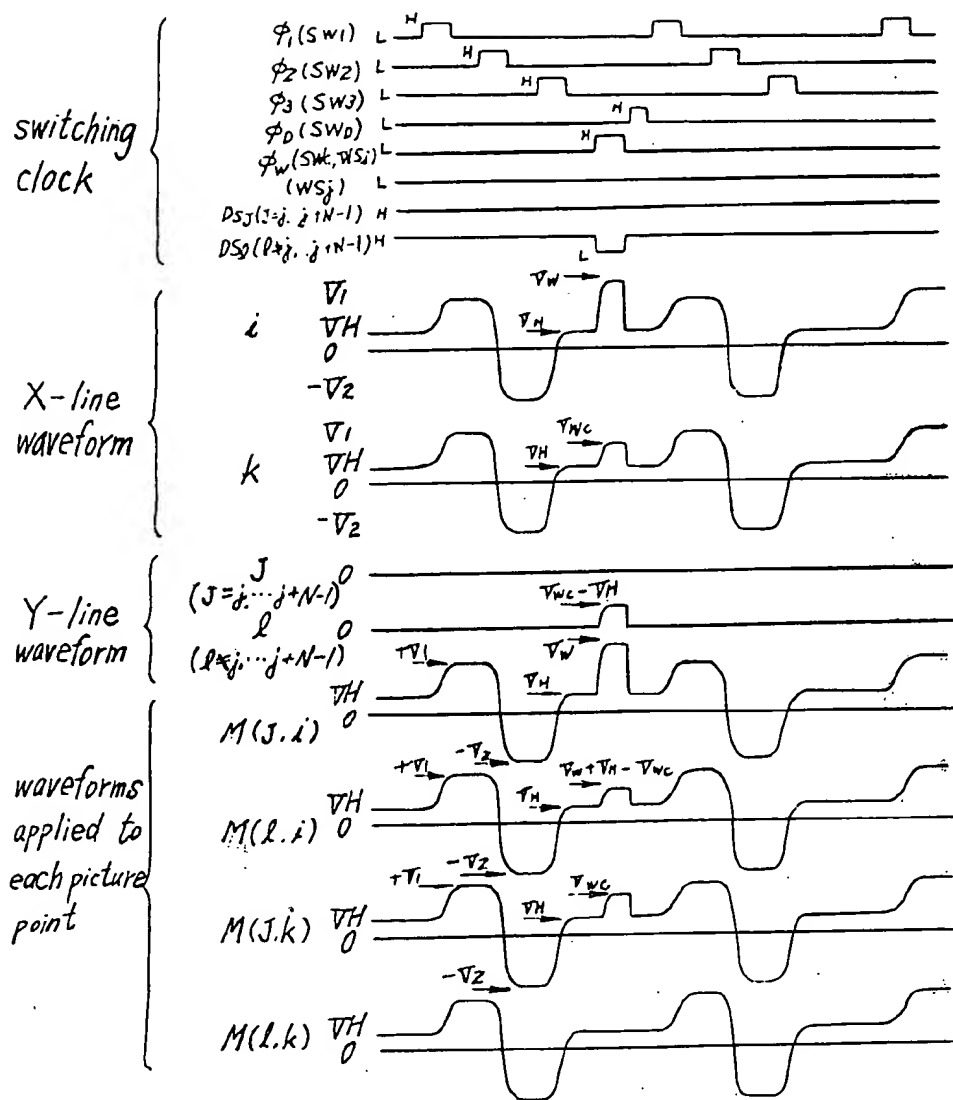 switching
clock
φ1(SW1) L H
φ2(SW2) L H
φ3(SW3) L H
φD(SWD) L H
φW(SWk, WSi) L H
(WSj) L
DSJ(J=j. j+N-1) H
DSl(l≠j,..j+N-1) H L
X-line
waveform
i V1 VH 0 -V2
VW
VH
k V1 VH 0 -V2
VWC
VH
Y-line
waveform
J 0
(J=j,...j+N-1)
l 0
(l≠j,...j+N-1)
VWC-VH
waveforms
applied to
each picture
point
M(J.i) VH 0
+V1
-V2
VH
VW
M(l.i) VH 0
+V1
-V2
VH
VW+VH-VWC
M(J.k) VH 0
+V1
-V2
VH
VWC
M(l.k) VH 0